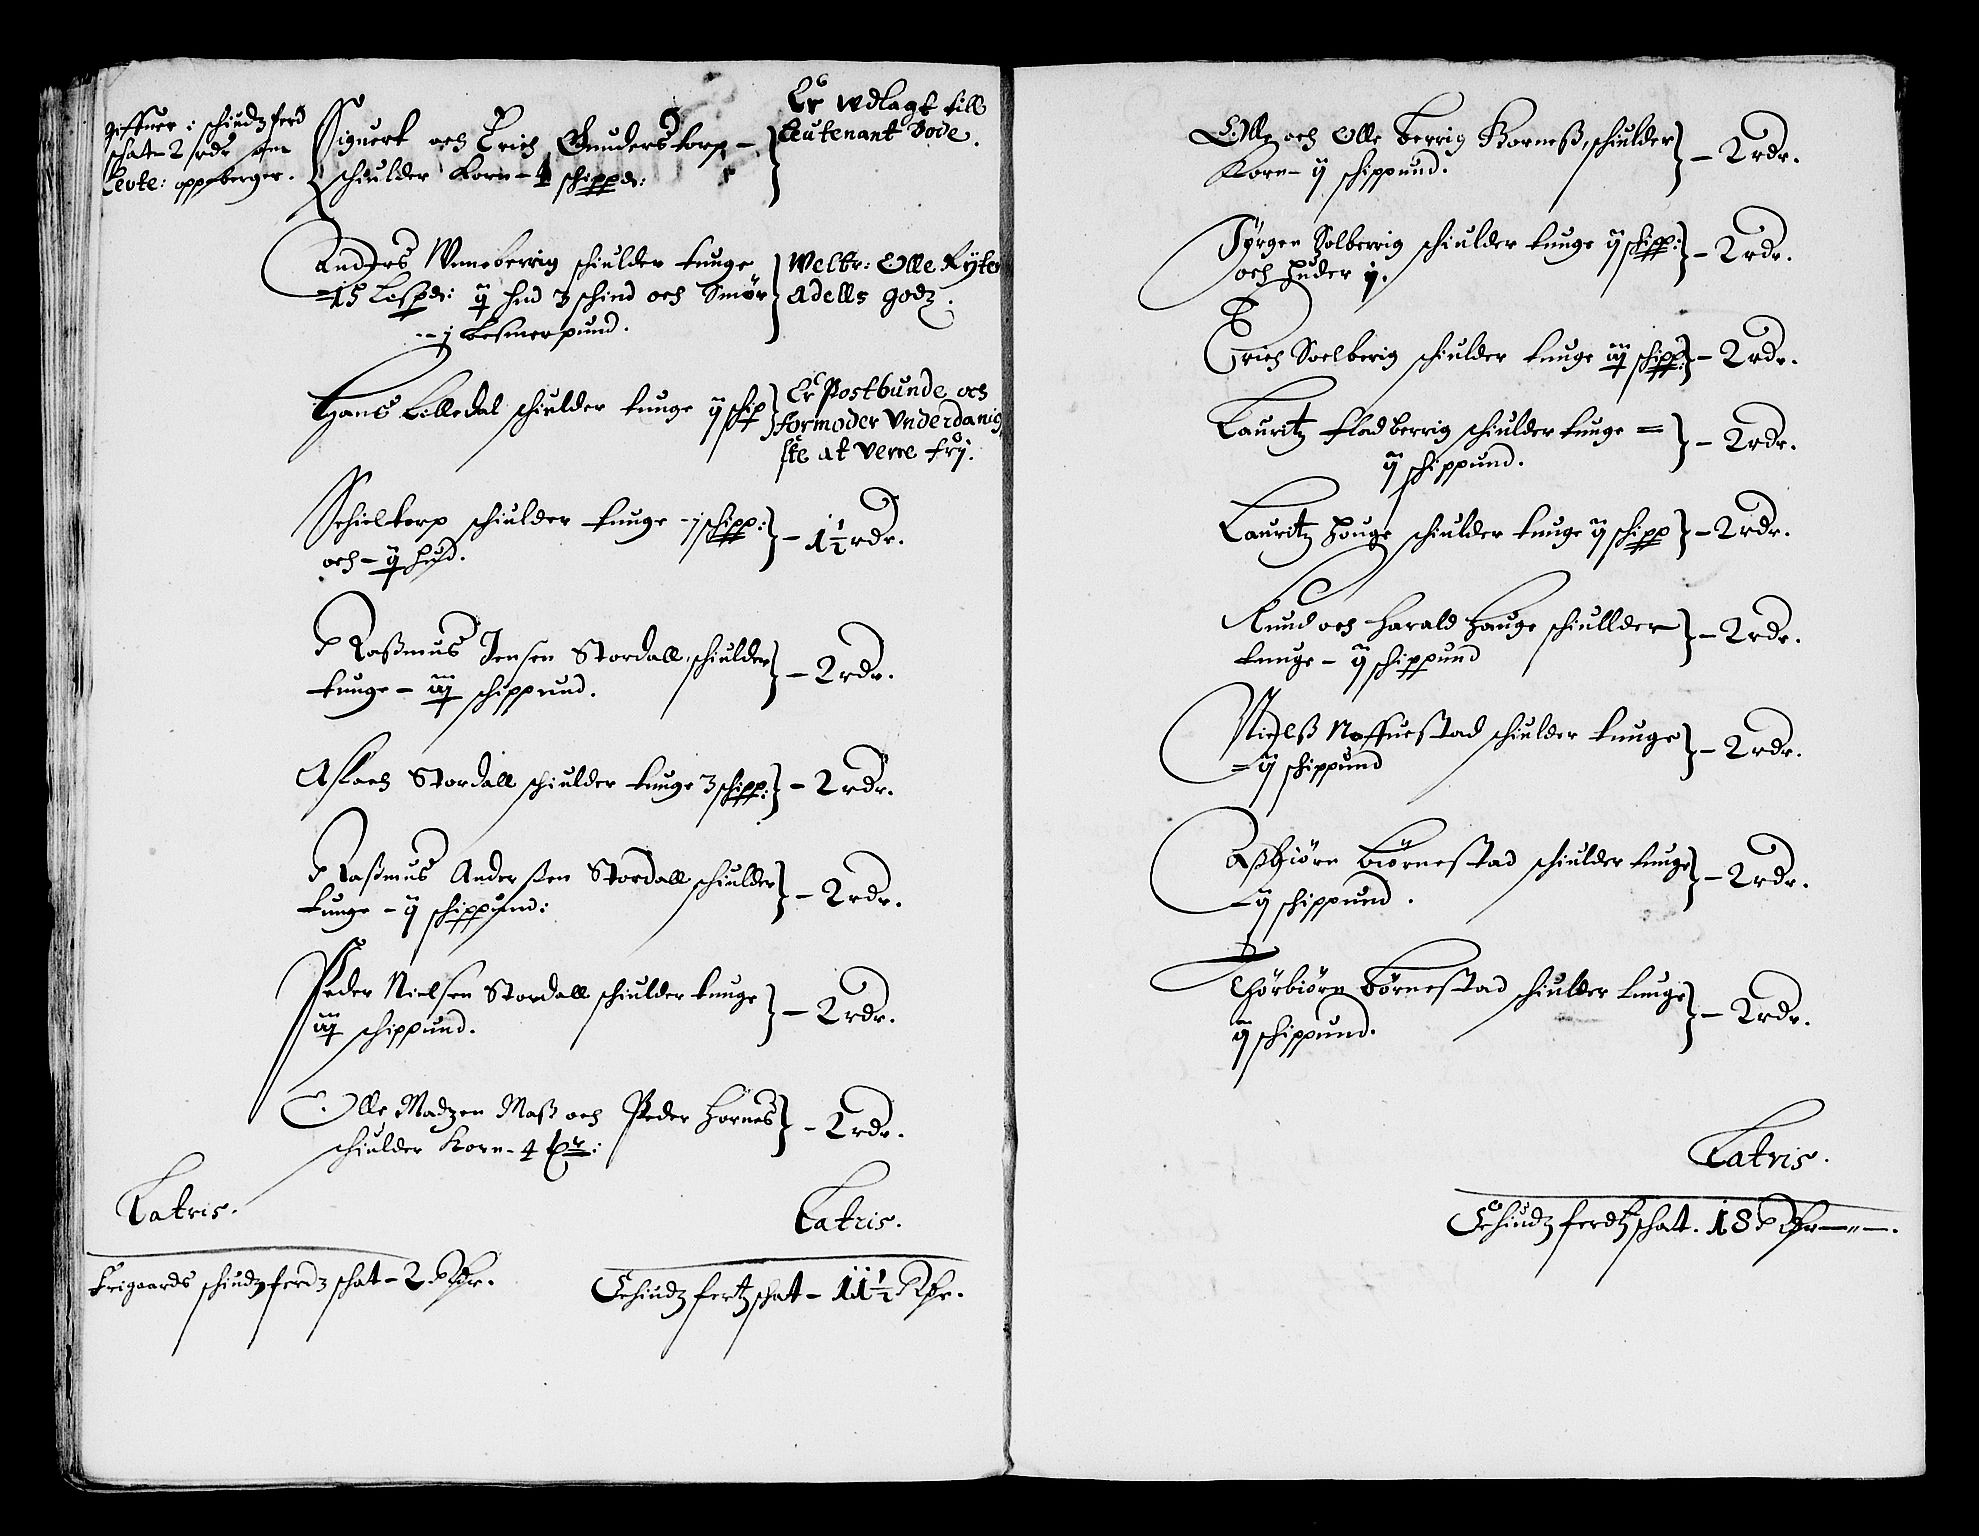 giffuer i schiudzferd
schat - 2 rdr
Leote: oppeberger.
Siguert och Erich Gunderstorp -
schiulder korn - 4 schippd:
Er udlagt till
Leutenant Bode.
Anders Winneberrig schiulder tunge
- 15 Lespd: ij hud 3 schind och Smör
- j besmerpund.
Welbr: Olle Ryters
Adells godz.
Hans Lilledal schiulder tunge ij schip
Er Postbunde och
formoder Underdanig
ste at verre frj.
Schieltorp schiulder tunge - j schipp:
och - ij hud.
- 1½ rdr.
Rasmus Jensen Stordall schiulder
tunge - iij schippund.
- 2 rdr.
Aslach Stordall schiulder tunge 3 schipp:
- 2 rdr.
Rasmus Andersen Stordall schiulder
tunge - ij schippund:
- 2 rdr.
Peder Nielsen Stordall schiulder tunge
iij schippund.
- 2 rdr.
Olle Madzen Maß och Peder Hornes
schiulder Korn - 4
- 2 rdr.
Latris.
Latris.
Frigaards schiudzferdz schat - 2 Rdr.
Schiudz fertz schat - 11½ Rdr.
Olle och Olle Berrig Korneß, schiulder
Korn - ij schippund.
- 2 rdr.
Jörgen Solberrig schiulder tunge ij schipp:
och huder ij.
- 2 rdr.
Erich Soelberig schiulder tunge iij schipp:
- 2 rdr.
Lauritz Fladberrig schiulder tunge =
ij schippund.
- 2 rdr.
Lauritz Houge schiulder tunge ij schipp
- 2 rdr.
Knud och Harald Hauge schiullder
tunge - ij schippund
- 2 rdr.
Nielß Noffuestad schiulder tunge
= ij schippund
- 2 rdr.
Aßbiörn Biörnestad schiulder tunge
- ij schippund.
- 2 rdr.
Thörbiörn Börnestad schiulder tunge
ij schippund.
- 2 rdr.
Latris.
Schiudz ferdtz schat. 18 Rdr - " -.